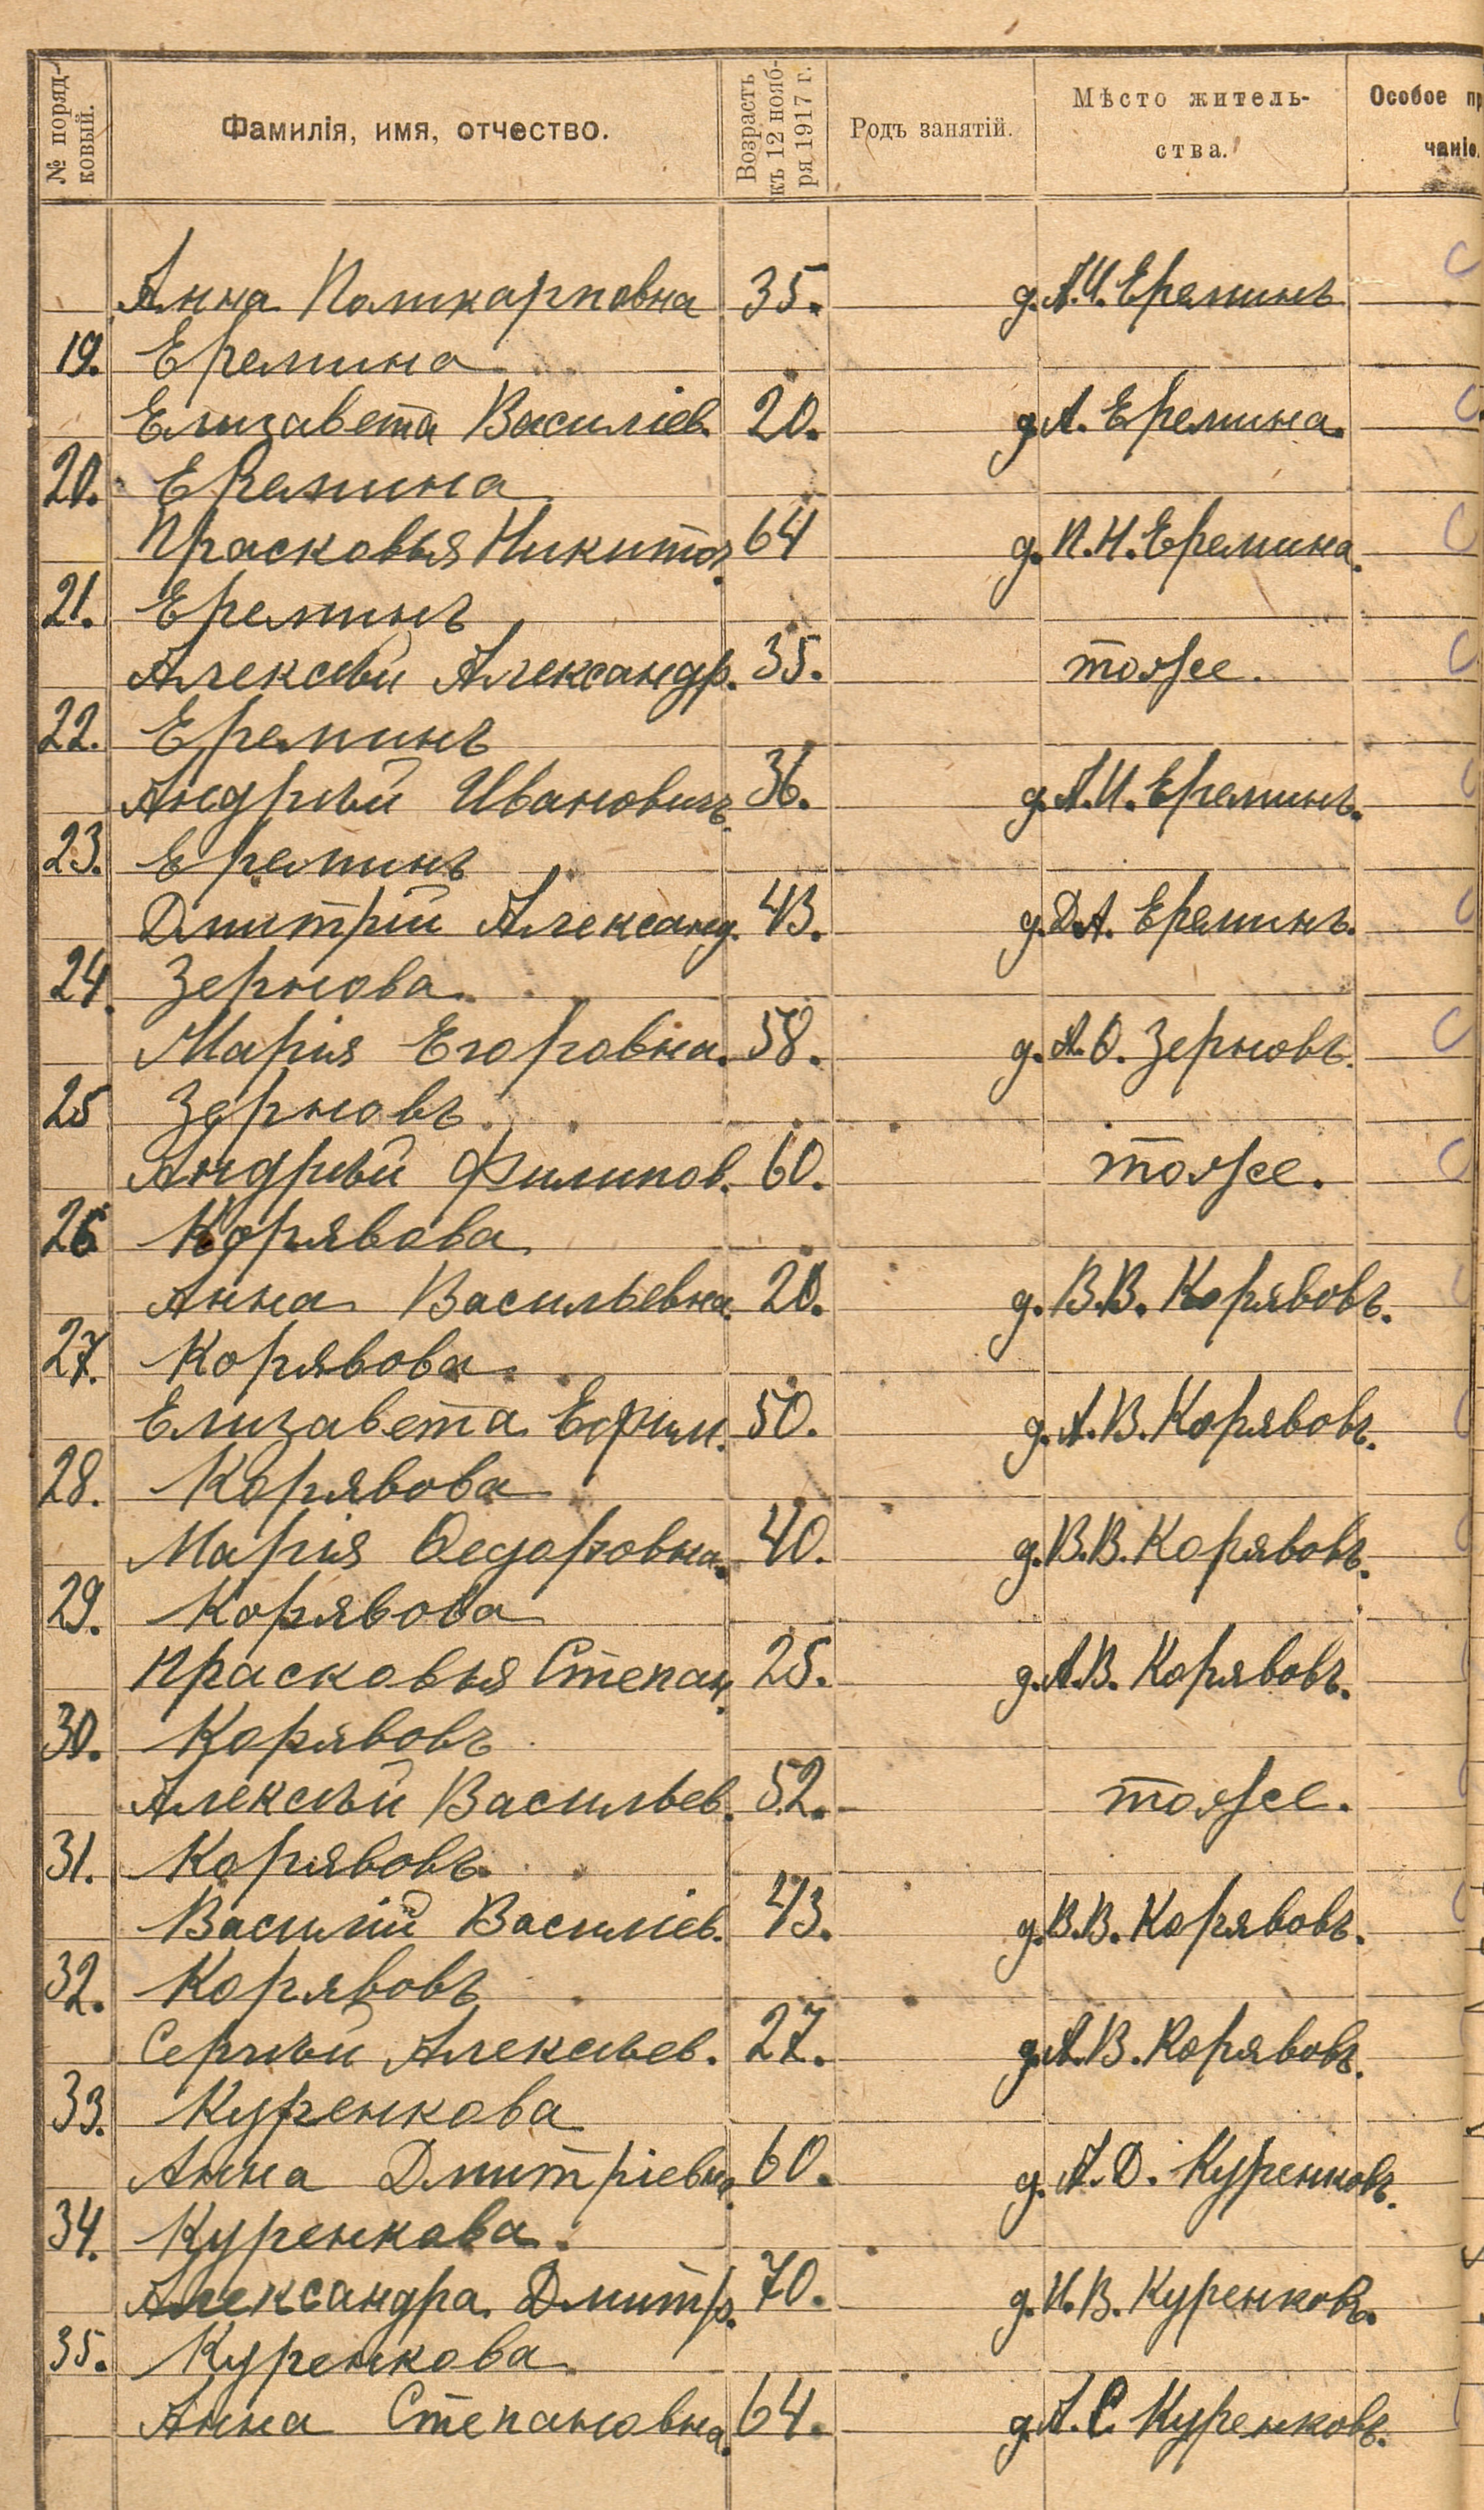 № поряд-
ковый.
Фамилія, имя, отчество.
Возрасть
къ 12 нояб-
ря 1917 г.
Родъ занятій.
Мѣсто житель-
ства.
Особое
чаніе
Анна Поликарповна 35. д. А.И. Ереминъ
19. Еремина
Елизавета Василіев. 20. д. А. Еремина.
20. Еремина
Прасковья Никитов. 64 д. П.Н. Еремина.
21. Ереминъ
Алексѣй Александр. 35. тоже.
22. Ереминъ
Андрѣй Ивановичъ. 36. д. А.И. Ереминъ.
23. Ереминъ
Дмитрій Александ. 43. д. Д.А. Ереминъ.
24. Зернова.
Марія Егоровна. 58. д. А.Ѳ. Зерновъ.
25 Зерновъ.
Андрѣй Филипов. 60. тоже.
26 Корявова
Анна Васильевна. 20. д. В.В. Корявовъ.
27. Корявова.
Елизавета Ефим. 50. д. А.В. Корявовъ.
28. Корявова
Марія Ѳедоровна. 40. д. В.В. Корявовъ.
29. Корявова
Прасковья Степан. 25. д. А.В. Корявовъ.
30. Корявовъ
Алексѣй Васильев. 52. тоже.
31. Корявовъ.
Василій Василіев. 43. д. В.В. Корявовъ.
32. Корявовъ
Сергѣй Алексѣев. 27. д. А.В. Корявовъ.
33. Куренкова
Анна Дмитріевна. 60. д. А.Д. Куренковъ.
34. Куренкова.
Александра Дмитр. 70. д. И.В. Куренковъ.
35. Куренкова
Анна Степановна. 64. д. А.С. Куренковъ.